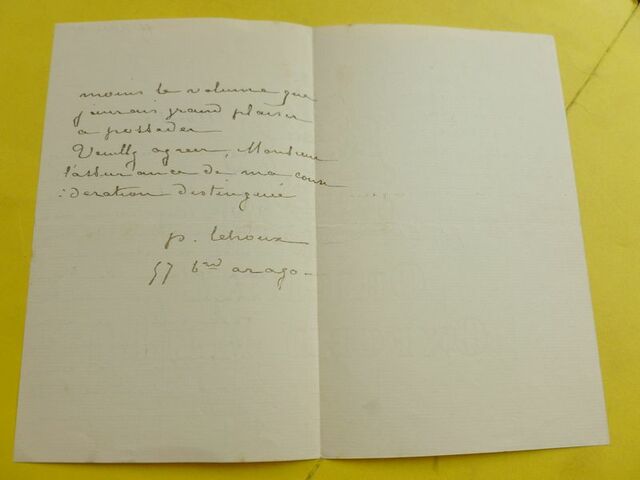 moins le volume que
j'aurais grand plaisir
a posseder
Veuillez agreer, Monsieur
l'assurance de ma consi
:deration distinguée
p. Lehoux
57 bvd arago